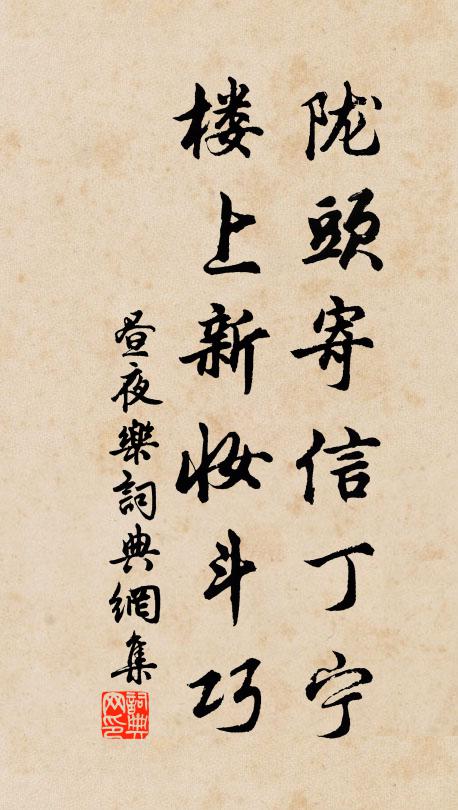 陇頭寄信丁宁
楼上新妆斗巧
昼夜樂詞典網集
詞典网印